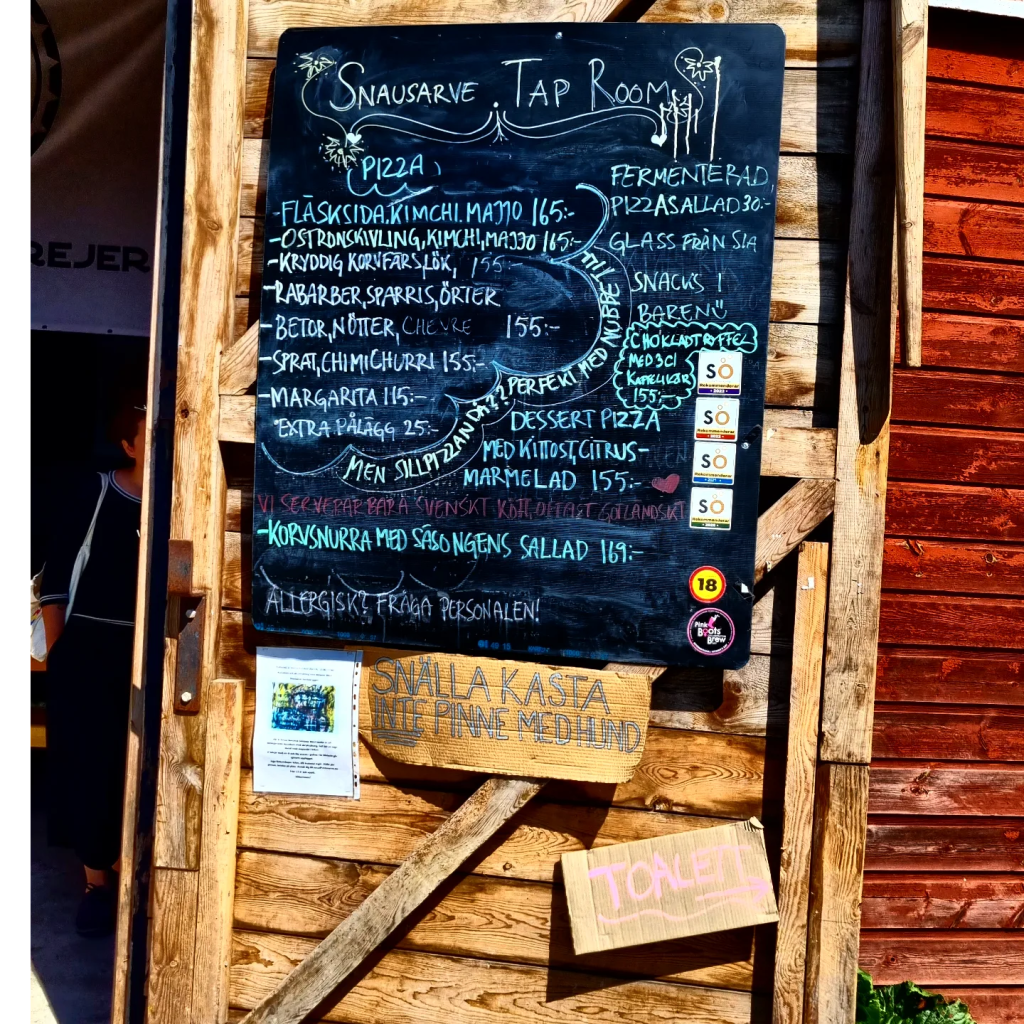 SNAUSARVE . TAP ROOM
PIZZA
-FLÄSKSIDA.KIMCHI.MAJJO 165:-
-OSTRONSKIVLING, KIMCHI, MAJJO 165:-
-KRYDDIG KORVFÄRS, LÖK, 155:-
-RABARBER, SPARRIS, ÖRTER
-BETOR, NÖTTER, CHEVRE 155:-
-SPRAT, CHIMICHURRI 155:-
-MARGARITA 115:-
*EXTRA PÅLÄGG 25:-
MEN SILLPIZZAN DÅ?? PERFEKT MED NUBBE TILL
FERMENTERAD
PIZZASALLAD 30:-
GLASS FRÅN SIA
SNACKS I
BAREN Ü
CHOKLADTRYFFEL
MED 3CL
KAFFELIKÖR
155:-
DESSERT PIZZA
MED KITTOST, CITRUS-
MARMELAD 155:-
VI SERVERAR BARA SVENSKT KÖTT, OFTAST GOTLÄNDSKT
-KORVSNURRA MED SÄSONGENS SALLAD 169:-
ALLERGISK? FRÅGA PERSONALEN!
SÖ
Rekommenderar
2023
SÖ
Rekommenderar
2022
SÖ
Rekommenderar
2021
SÖ
Rekommenderar
18
Pink
Boots
Brew
REJER
SNÄLLA KASTA
INTE PINNE MED HUND
TOALETT